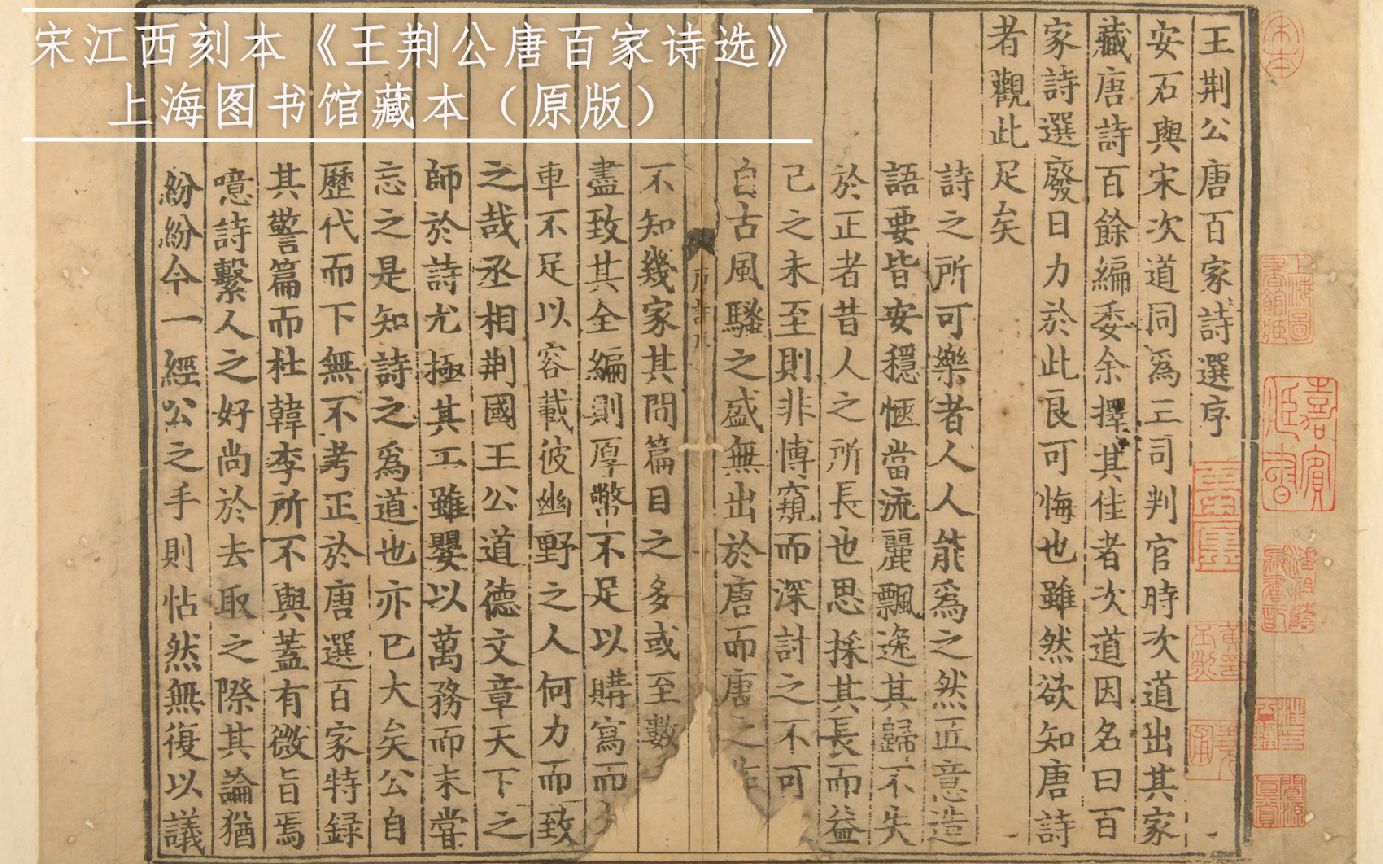 宋江西刻本《王荆公唐百家诗选》
上海图书馆藏本（原版）
王荆公唐百家詩選序
安石與宋次道同爲三司判官時次道出其家
藏唐詩百餘編委余擇其佳者次道因名曰百
家詩選廢日力於此良可悔也雖然欲知唐詩
者觀此足矣
詩之所可樂者人人能爲之然匠意造
語要皆安穩愜當流麗飄逸其歸不失
於正者昔人之所長也思採其長而益
己之未至則非博窺而深討之不可
自古風騷之盛無出於唐而唐之作
唐詩序
不知幾家其間篇目之多或至數
盡致其全編則厚幣不足以購寫而
車不足以容載彼幽野之人何力而致
之哉丞相荆國王公道德文章天下之
師於詩尤極其工雖嬰以萬務而未嘗
忘之是知詩之爲道也亦已大矣公自
歷代而下無不考正於唐選百家特録
其警篇而杜韓李所不與蓋有微旨焉
噫詩繫人之好尚於去取之際其論猶
紛紛今一經公之手則帖然無復以議
上海圖書館藏